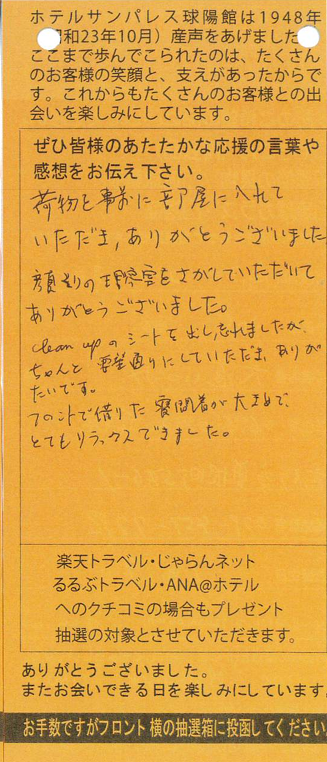 ホテルサンパレス球陽館は1948年
昭和23年10月）産声をあげました
ここまで歩んでこられたのは、たくさん
のお客様の笑顔と、支えがあったからで
す。これからもたくさんのお客様との出
会いを楽しみにしています。
ぜひ皆様のあたたかな応援の言葉や
感想をお伝え下さい。
荷物を事前に部屋に入れて
いただき、ありがとうございました
顔そりの理容室をさがしていただいて
ありがとうございました。
clean upのシートを出し忘れましたが、
ちゃんと要望通りにしていただき、ありが
たいです。
フロントで借りた寝間着が大きめで、
とてもリラックスできました。
楽天トラベル・じゃらんネット
るるぶトラベル・ANA@ホテル
へのクチコミの場合もプレゼント
抽選の対象とさせていただきます。
ありがとうございました。
またお会いできる日を楽しみにしています
お手数ですがフロント横の抽選箱に投函してください